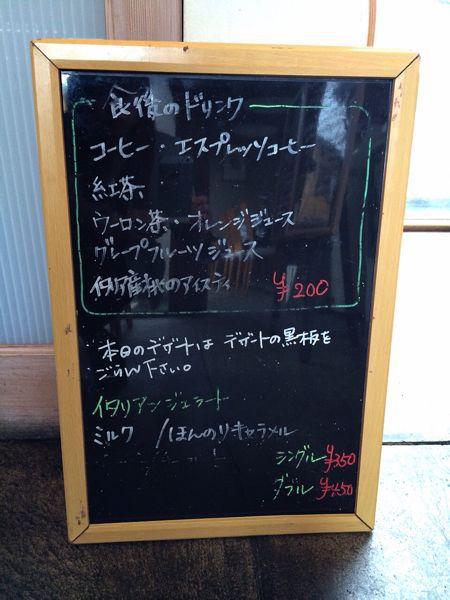 食後のドリンク
コーヒー・エスプレッソコーヒー
紅茶
ウーロン茶・オレンジジュース
グレープフルーツジュース
伊産桃のアイスティ ¥200
本日のデザートは デザートの黒板を
ごらん下さい。
イタリアンジェラート
ミルク / ほんのりキャラメル
シングル ¥350
ダブル ¥450